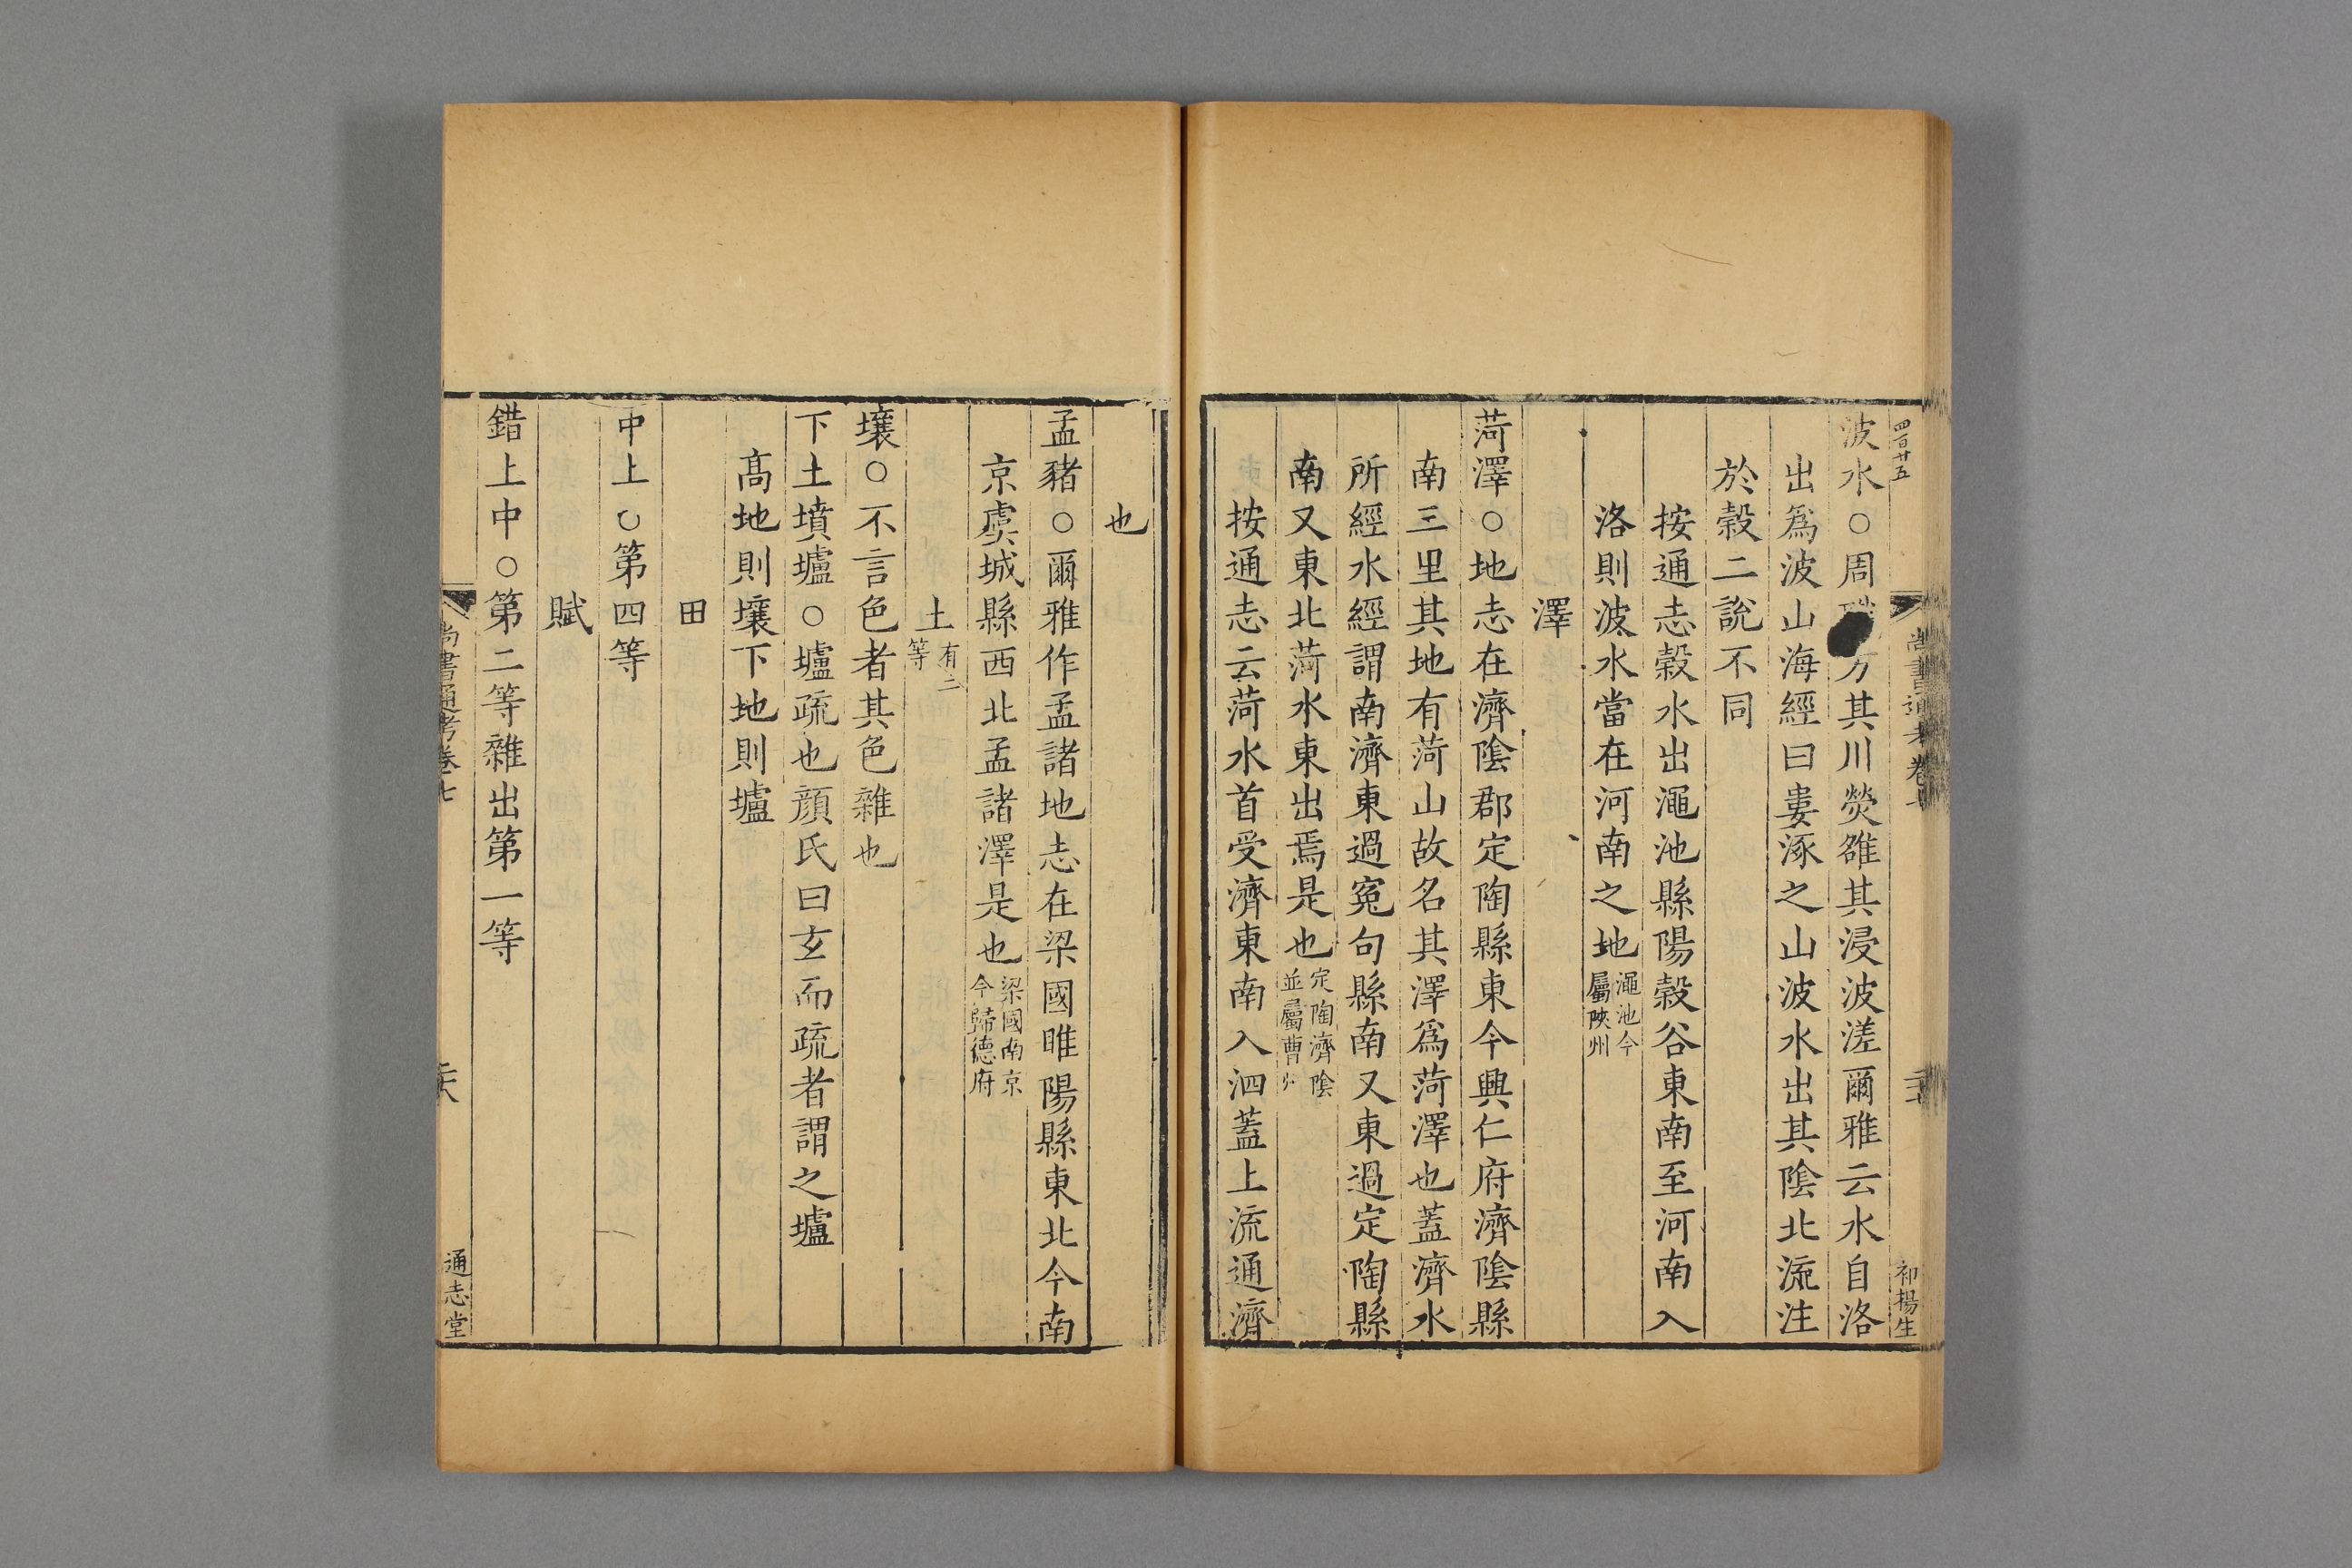 四百廿五
波水○周方其川熒雒其浸波溠爾雅云水自洛
出爲波山海經曰婁涿之山波水出其陰北流注
於穀二說不同
按通志穀水出澠池縣陽穀谷東南至河南入
洛則波水當在河南之地澠池今屬陝州
澤
菏澤○地志在濟陰郡定陶縣東今興仁府濟陰縣
南三里其地有菏山故名其澤爲菏澤也蓋濟水
所經水經謂南濟東過寃句縣南又東過定陶縣
南又東北菏水東出焉是也定陶濟陰並屬曹州
按通志云菏水首受濟東南入泗蓋上流通濟
尚書通考卷七
初揚生
也
孟豬○爾雅作孟諸地志在梁國睢陽縣東北今南
京虞城縣西北孟諸澤是也梁國南京今歸德府
土有二等
壤○不言色者其色雜也
下土墳壚○壚疏也顏氏曰玄而疏者謂之壚
高地則壤下地則壚
田
中上○第四等
賦
錯上中○第二等雜出第一等
尚書通考卷七
通志堂